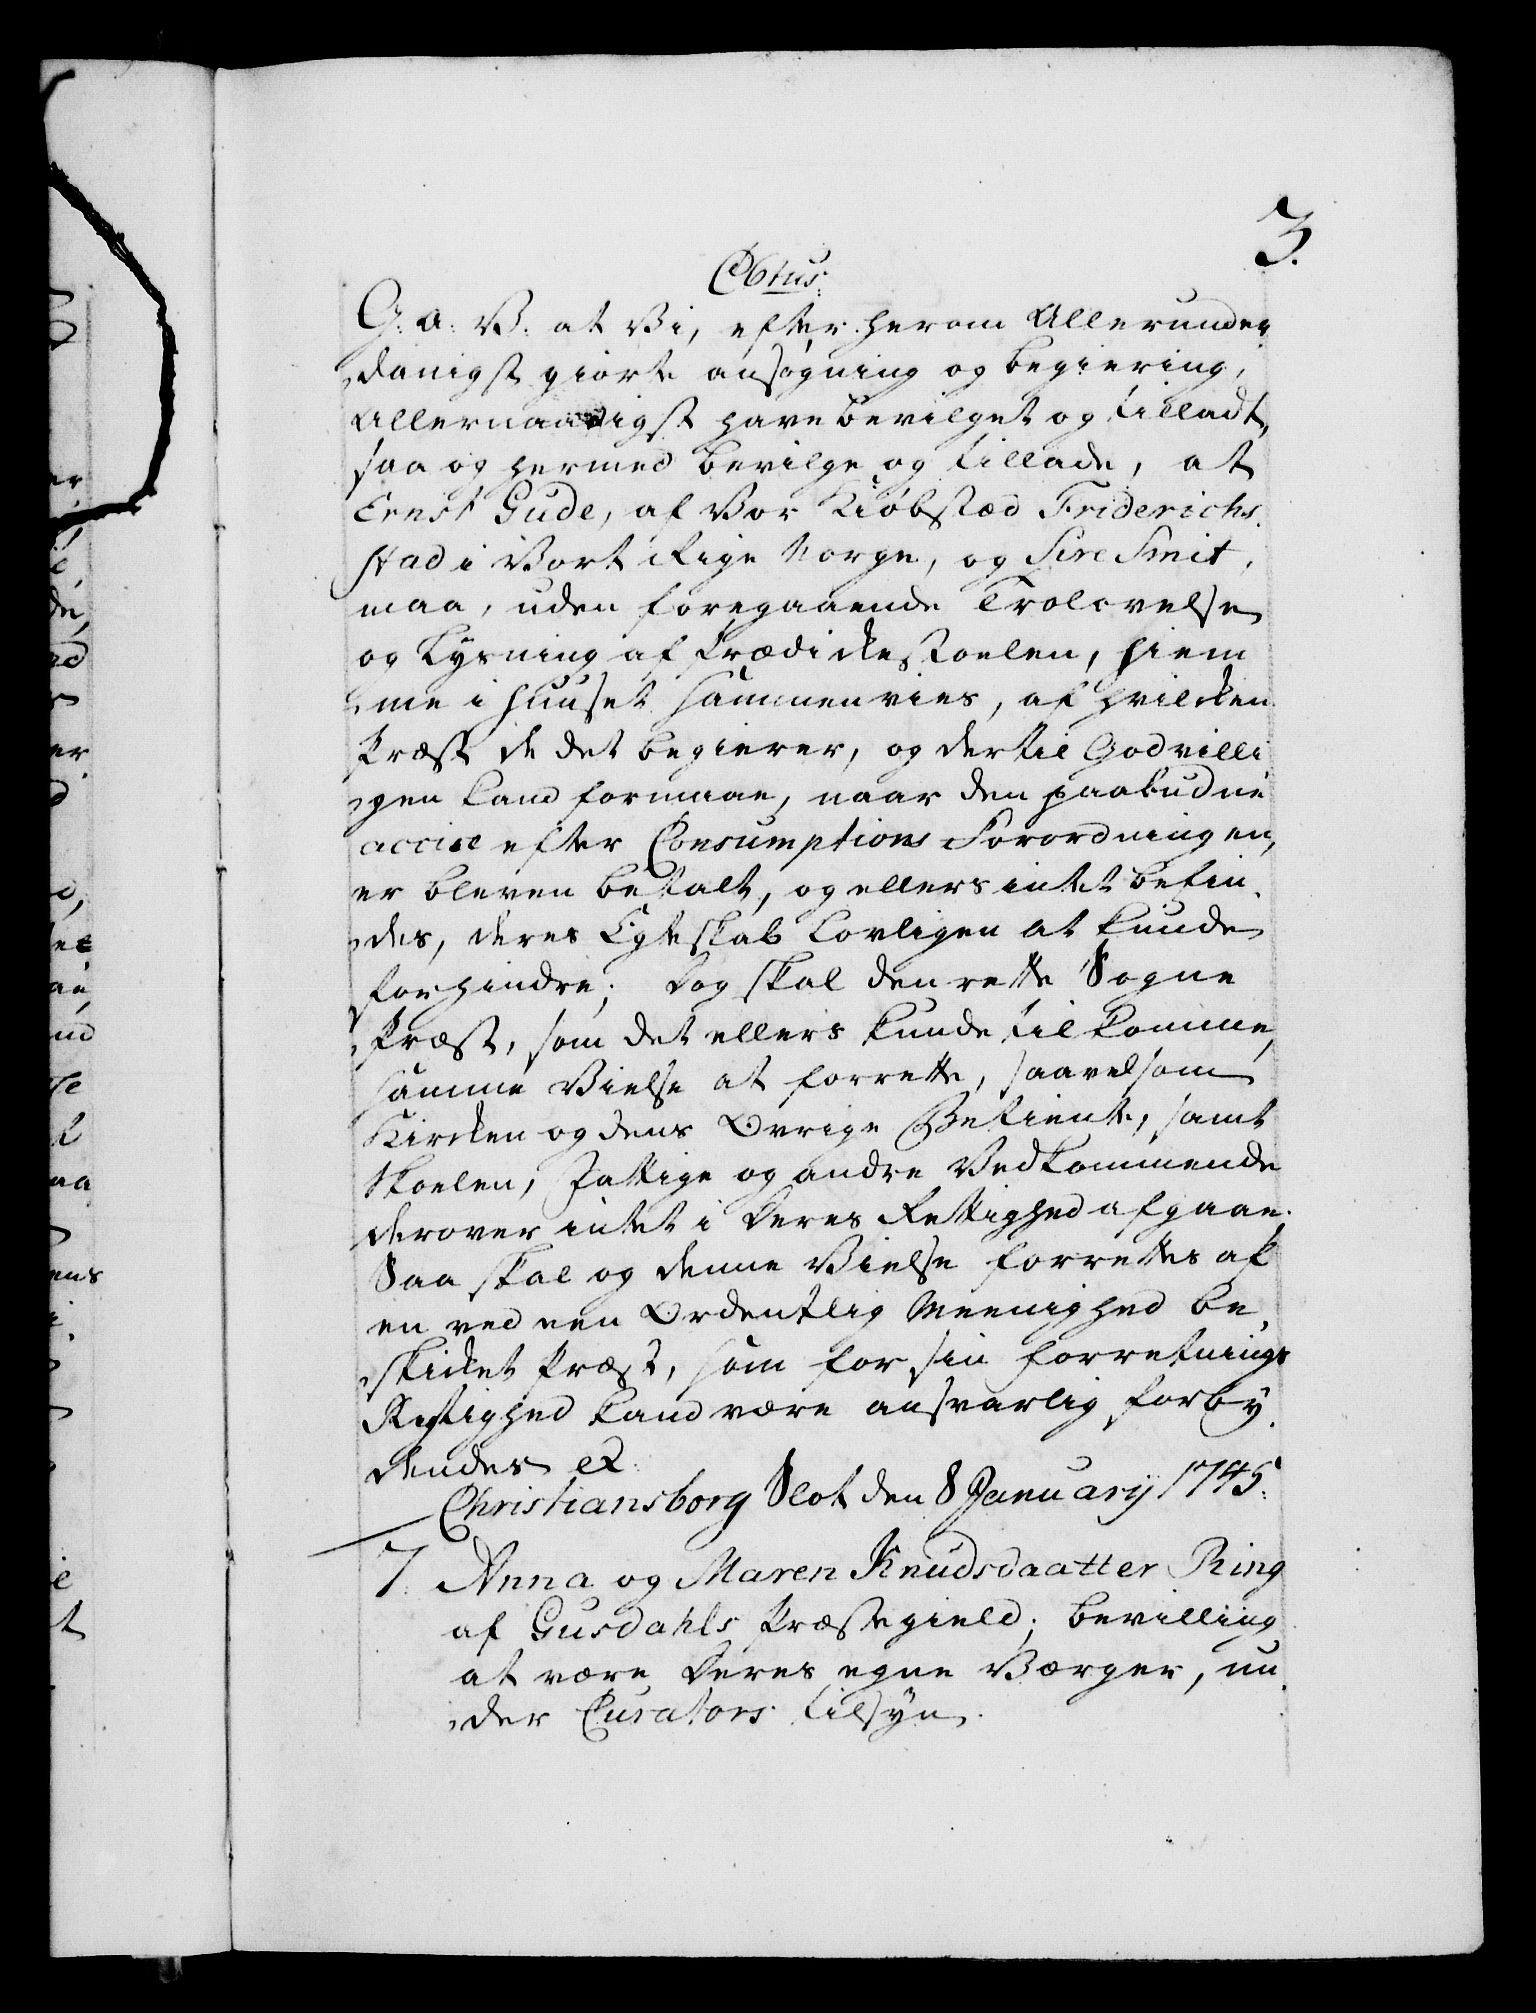 3.
C6tus:
G: a: V: at Vi, efter herom Allerunder
danigst giorte ansøgning og begiering,
Allernaadigst have bevilget og tilladt,
saa og hermed bevilge og tillade, at
Ernst Gude, af Vor Kiøbstæd Friderichs
stad i Vort Rige Norge, og Sire Smit,
maa, uden foregaaende Trolovelse
og Lysning af Prædickestoelen, hiem
me i Huuset Sammenvies, af hvilcken
Præst de det begierer, og dertil Godvilli
gen kand formaae, naar den paabudne
accise efter Consumptions Forordningen,
er bleven betalt, og ellers intet befin
des, deres Egteskab Lovligen at kunde
forhindre; Dog skal den rette Sogne
Præst, som det ellers kunde tilkomme,
samme Vielse at forrette, saavelsom
Kircken og dens Øvrige Betiente, samt
Skoelen, Fattige og andre Vedkommende
derover intet i Deres Rettighed afgaae.
Saa skal og denne Vielse forrettes af
en ved een Ordentlig Meenighed be
skicket Præst, som for sin forretnings
Rigtighed kand være ansvarlig, forby
dendes &c:
Christiansborg Slot den 8 Januarij 1745:
7. Anna og Maren Knudsdaatter Ring
af Gusdahls Præstegield; bevilling
at være Deres egne Værger, un
der Curators tilsyn.